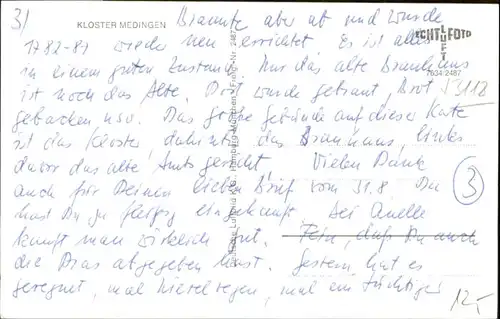 3)
KLOSTER MEDINGEN
brannte aber ab und wurde
1782-81 wieder neu errichtet. Es ist alles
in einem guten Zustand. Nur das alte Brauhaus
ist noch das Alte. Dort wurde gebraut, Brot
gebacken usw. Das große Gebäude auf dieser Karte
ist das Kloster, dahinter das Brauhaus, links
davor das alte Amtsgericht. Vielen Dank
auch für Deinen lieben Brief vom 31.8. Du
hast Du ja fleißig eingekauft. Bei Quelle
kauft man wirklich gut. Fein, daß Du auch
die Dias abgegeben hast. Gestern hat es
geregnet, mal Nieselregen, mal ein tüchtiger
ECHT LUFT FOTO
7034/2487
5112
3
12,-